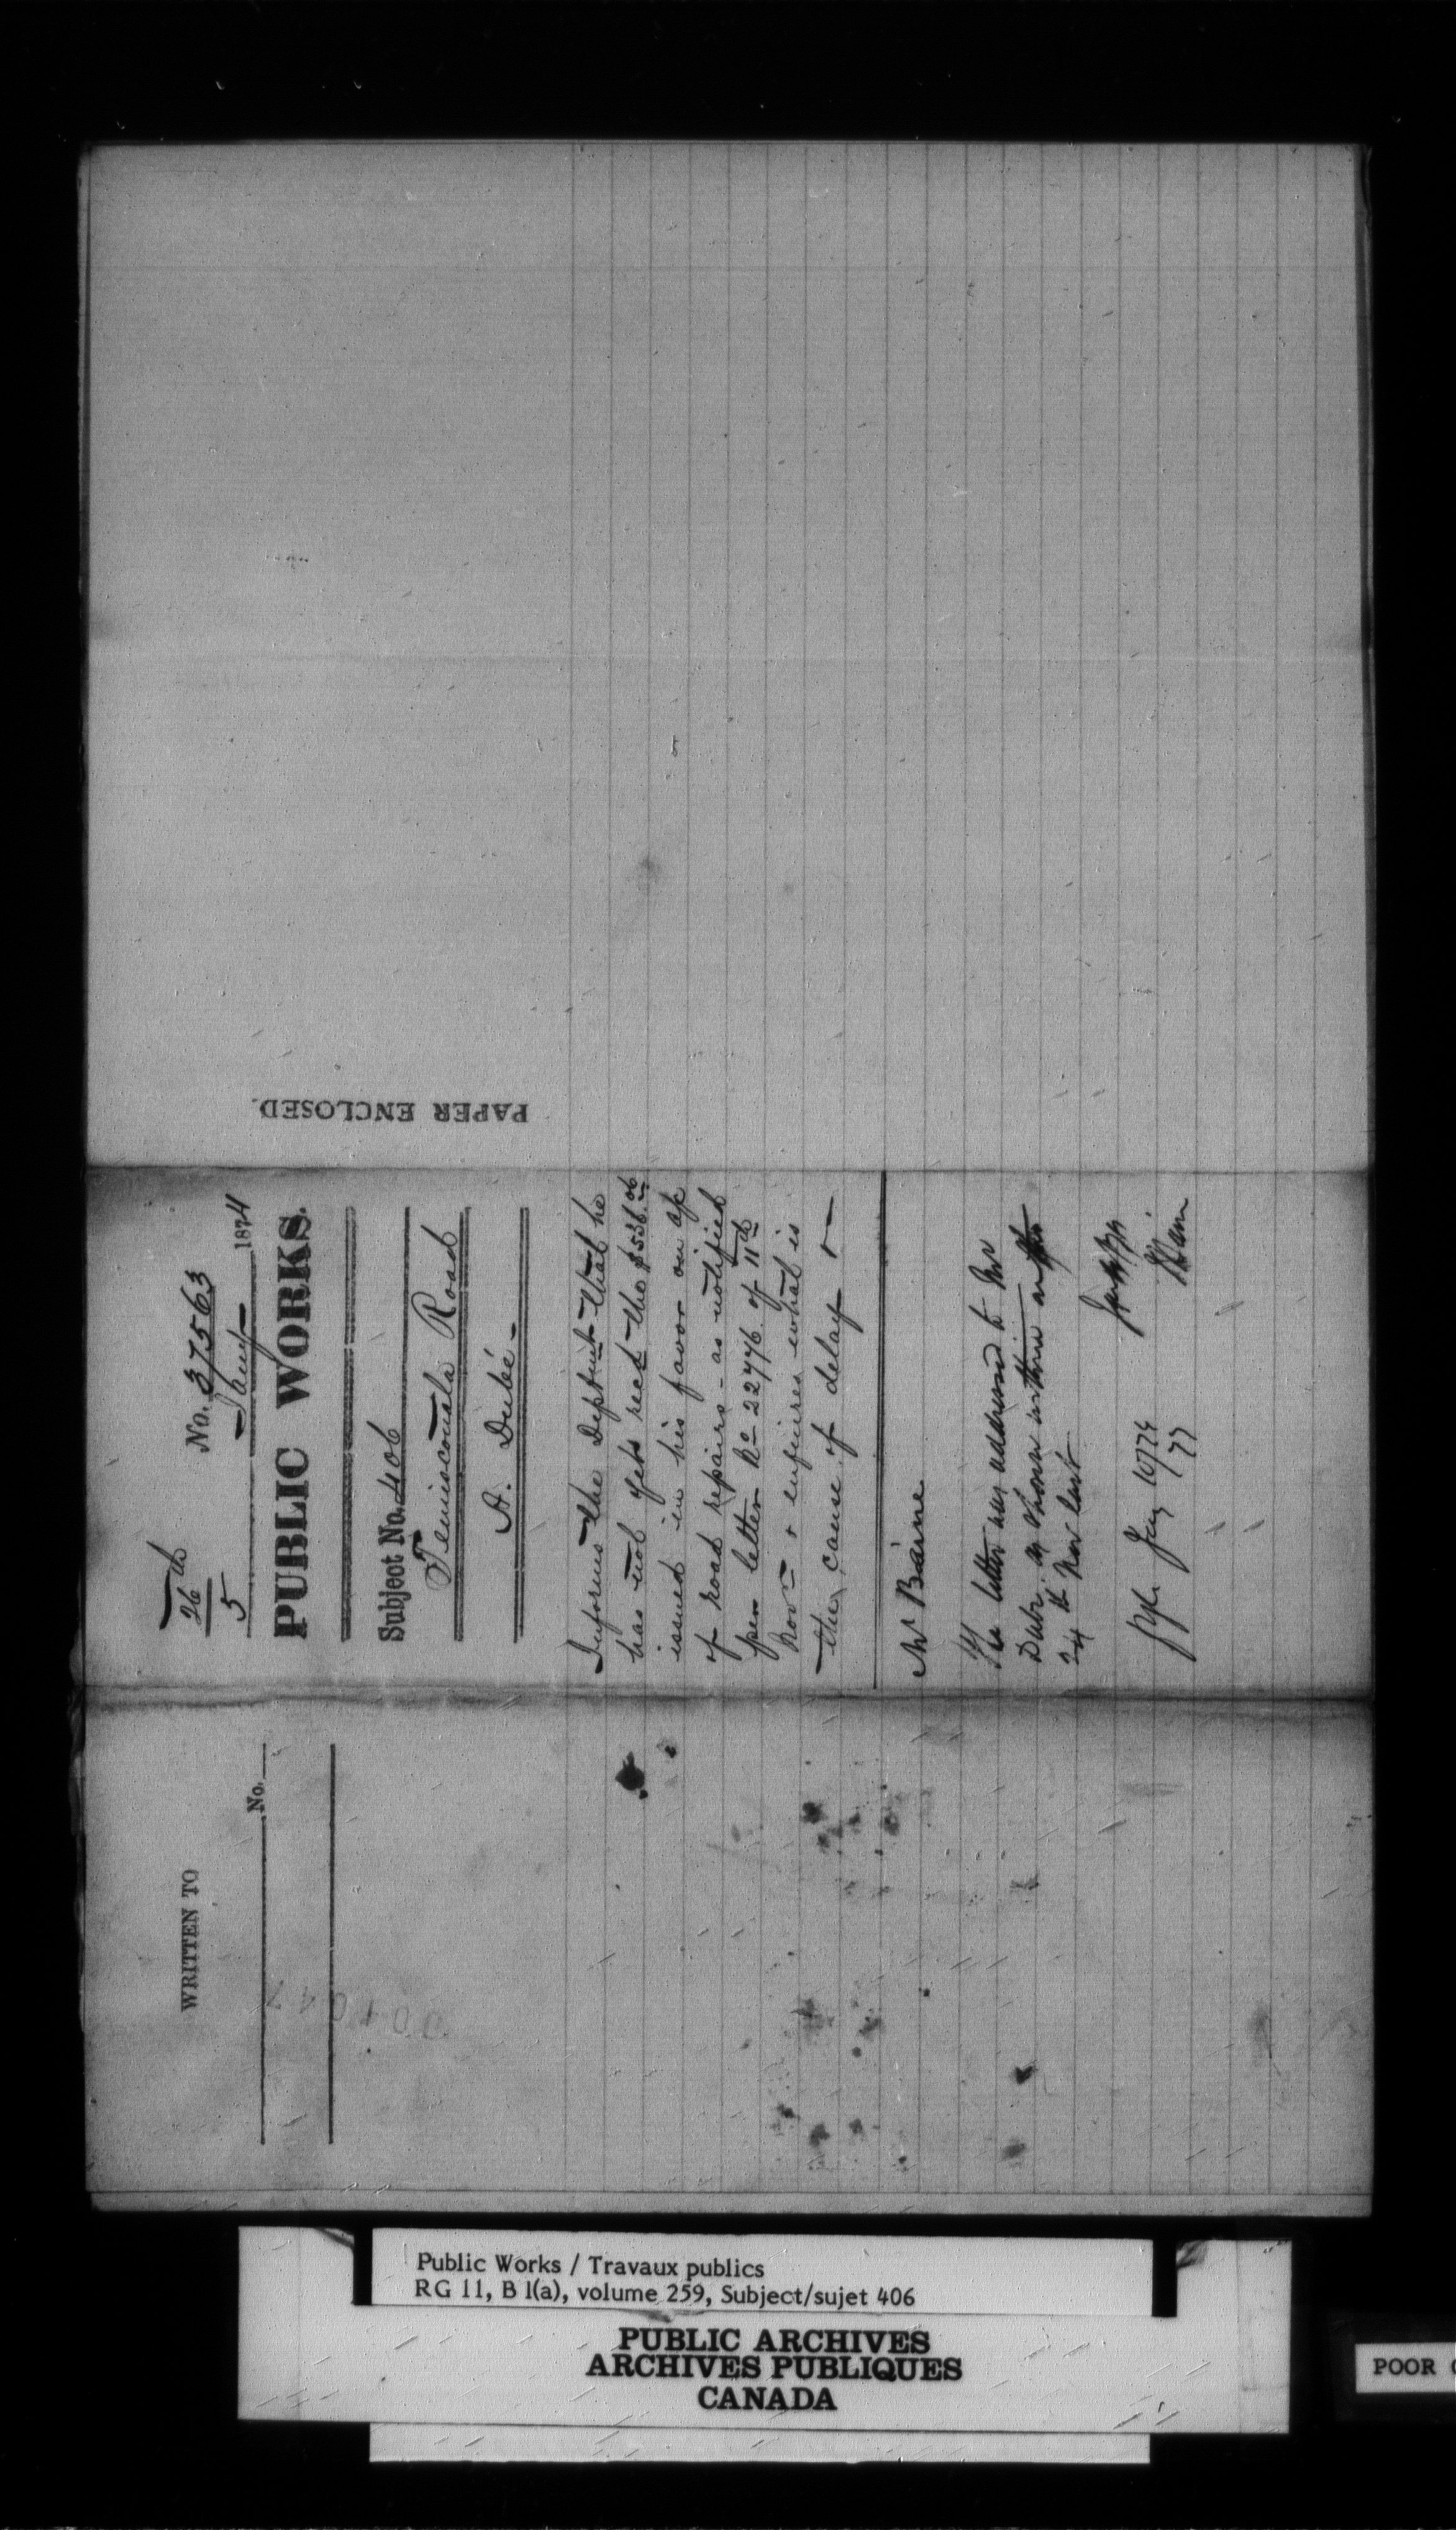 26th
5
No. 37563
Jany 1874
PUBLIC WORKS.
Subject No. 406
Temiscouata Road
A. Dubé -
Informs the Deptmt that he
has not yet recd the $536.06
issued in his favor on a/c
of road repairs - as notified
per letter No 22776 of 11th
Nov & enquires what is
the cause of delay -
Mr Baine
letter was addressed to Mr
Dubé as shown within
24th Nov last
Jany
WRITTEN TO
No.
PAPER ENCLOSED.
Public Works / Travaux publics
RG 11, B 1(a), volume 259, Subject/sujet 406
PUBLIC ARCHIVES
ARCHIVES PUBLIQUES
CANADA
POOR